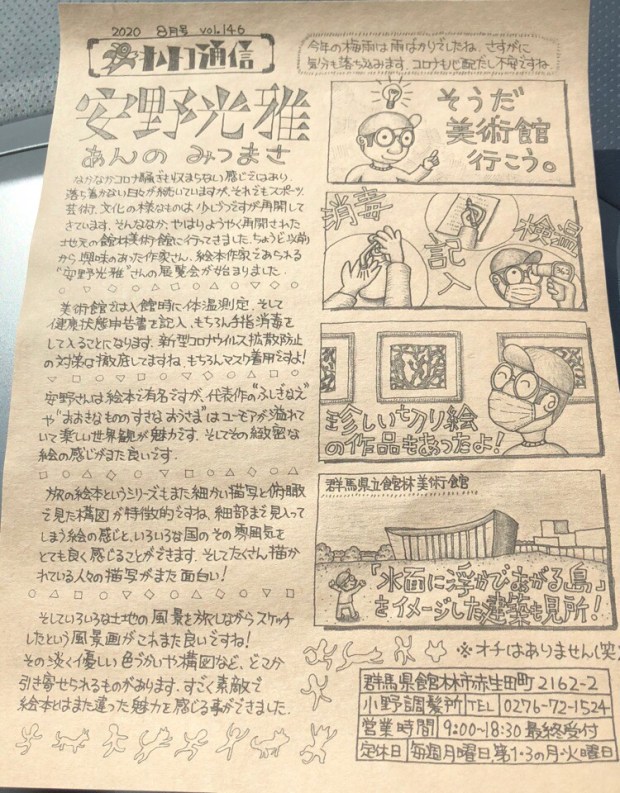 2020 8月号 vol.146
通信
今年の梅雨は雨ばかりでしたね、さすがに
気分も落ち込みます。コロナも心配だし不安ですね
安野光雅
あんの みつまさ
なかなかコロナ騒ぎも収まらない感じではあり、
落ち着かない日々が続いていますが、それでもスポーツ
芸術、文化の様なものは少しづつですが再開して
きています。そんななか、やはりようやく再開された
地元の館林美術館に行ってきました。ちょうど以前
から興味のあった作家さん、絵本作家であられる
"安野光雅"さんの展覧会が始まりました。
美術館では入館時に体温測定、そして
健康状態申告書を記入、もちろん手指消毒を
して入ることになります。新型コロナウイルス拡散防止
の対策は徹底してますね、もちろんマスク着用ですよ!
安野さんは絵本で有名ですが、代表作の"ふしぎなえ"
や"おおきなもののすきなおうさま"はユーモアが溢れて
いて楽しい世界観が魅力です。そしてその緻密な
絵の感じがまた良いです。
旅の絵本というシリーズもまた細かい描写と俯瞰
で見た構図が特徴的ですね、細部まで見入って
しまう絵の感じと、いろいろな国のその雰囲気を
とても良く感じることができます。そしてたくさん描か
れている人々の描写がまた面白い!
そしていろいろな土地の風景を旅しながらスケッチ
したという風景画がこれまた良いですね!
その淡く優しい色づかいや構図など、どこか
引き寄せられるものがあります。すごく素敵で
絵本とはまた違った魅力を感じる事ができました。
そうだ
美術館
行こう。
消毒
記入
検温
珍しい切り絵
の作品もあったよ!
群馬県立館林美術館
「水面に浮かびあがる島」
をイメージした建築も見所!
※オチはありません(笑)
群馬県館林市赤生田町2162-2
小野調髪所 TEL 0276-72-1524
営業時間 9:00~18:30 最終受付
定休日 毎週月曜日、第1・3の月・火曜日